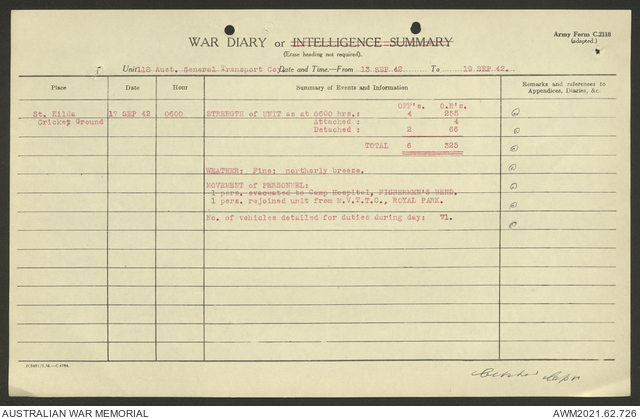 WAR DIARY or INTELLIGENCE SUMMARY
(Erase heading not required).
Army Form C.2118
(adapted.)
Unit 118 Aust. General Transport Coy Date and Time.—From 13 SEP 42 To 19 SEP 42
Place Date Hour Summary of Events and Information Remarks and references to Appendices, Diaries, &c.
St. Kilda 17 SEP 42 0600 STRENGTH of UNIT as at 0600 hrs.: OFF's. O.R's.
4 255
Cricket Ground Attached : 4
Detached : 2 66
TOTAL 6 325
WEATHER: Fine; northerly breeze.
MOVEMENT of PERSONNEL:
1 pers. evacuated to Camp Hospital, FISHERMEN'S BEND.
1 pers. rejoined unit from M.V.T.T.C., ROYAL PARK.
No. of vehicles detailed for duties during day: 71.
Capt
AUSTRALIAN WAR MEMORIAL AWM2021.62.726